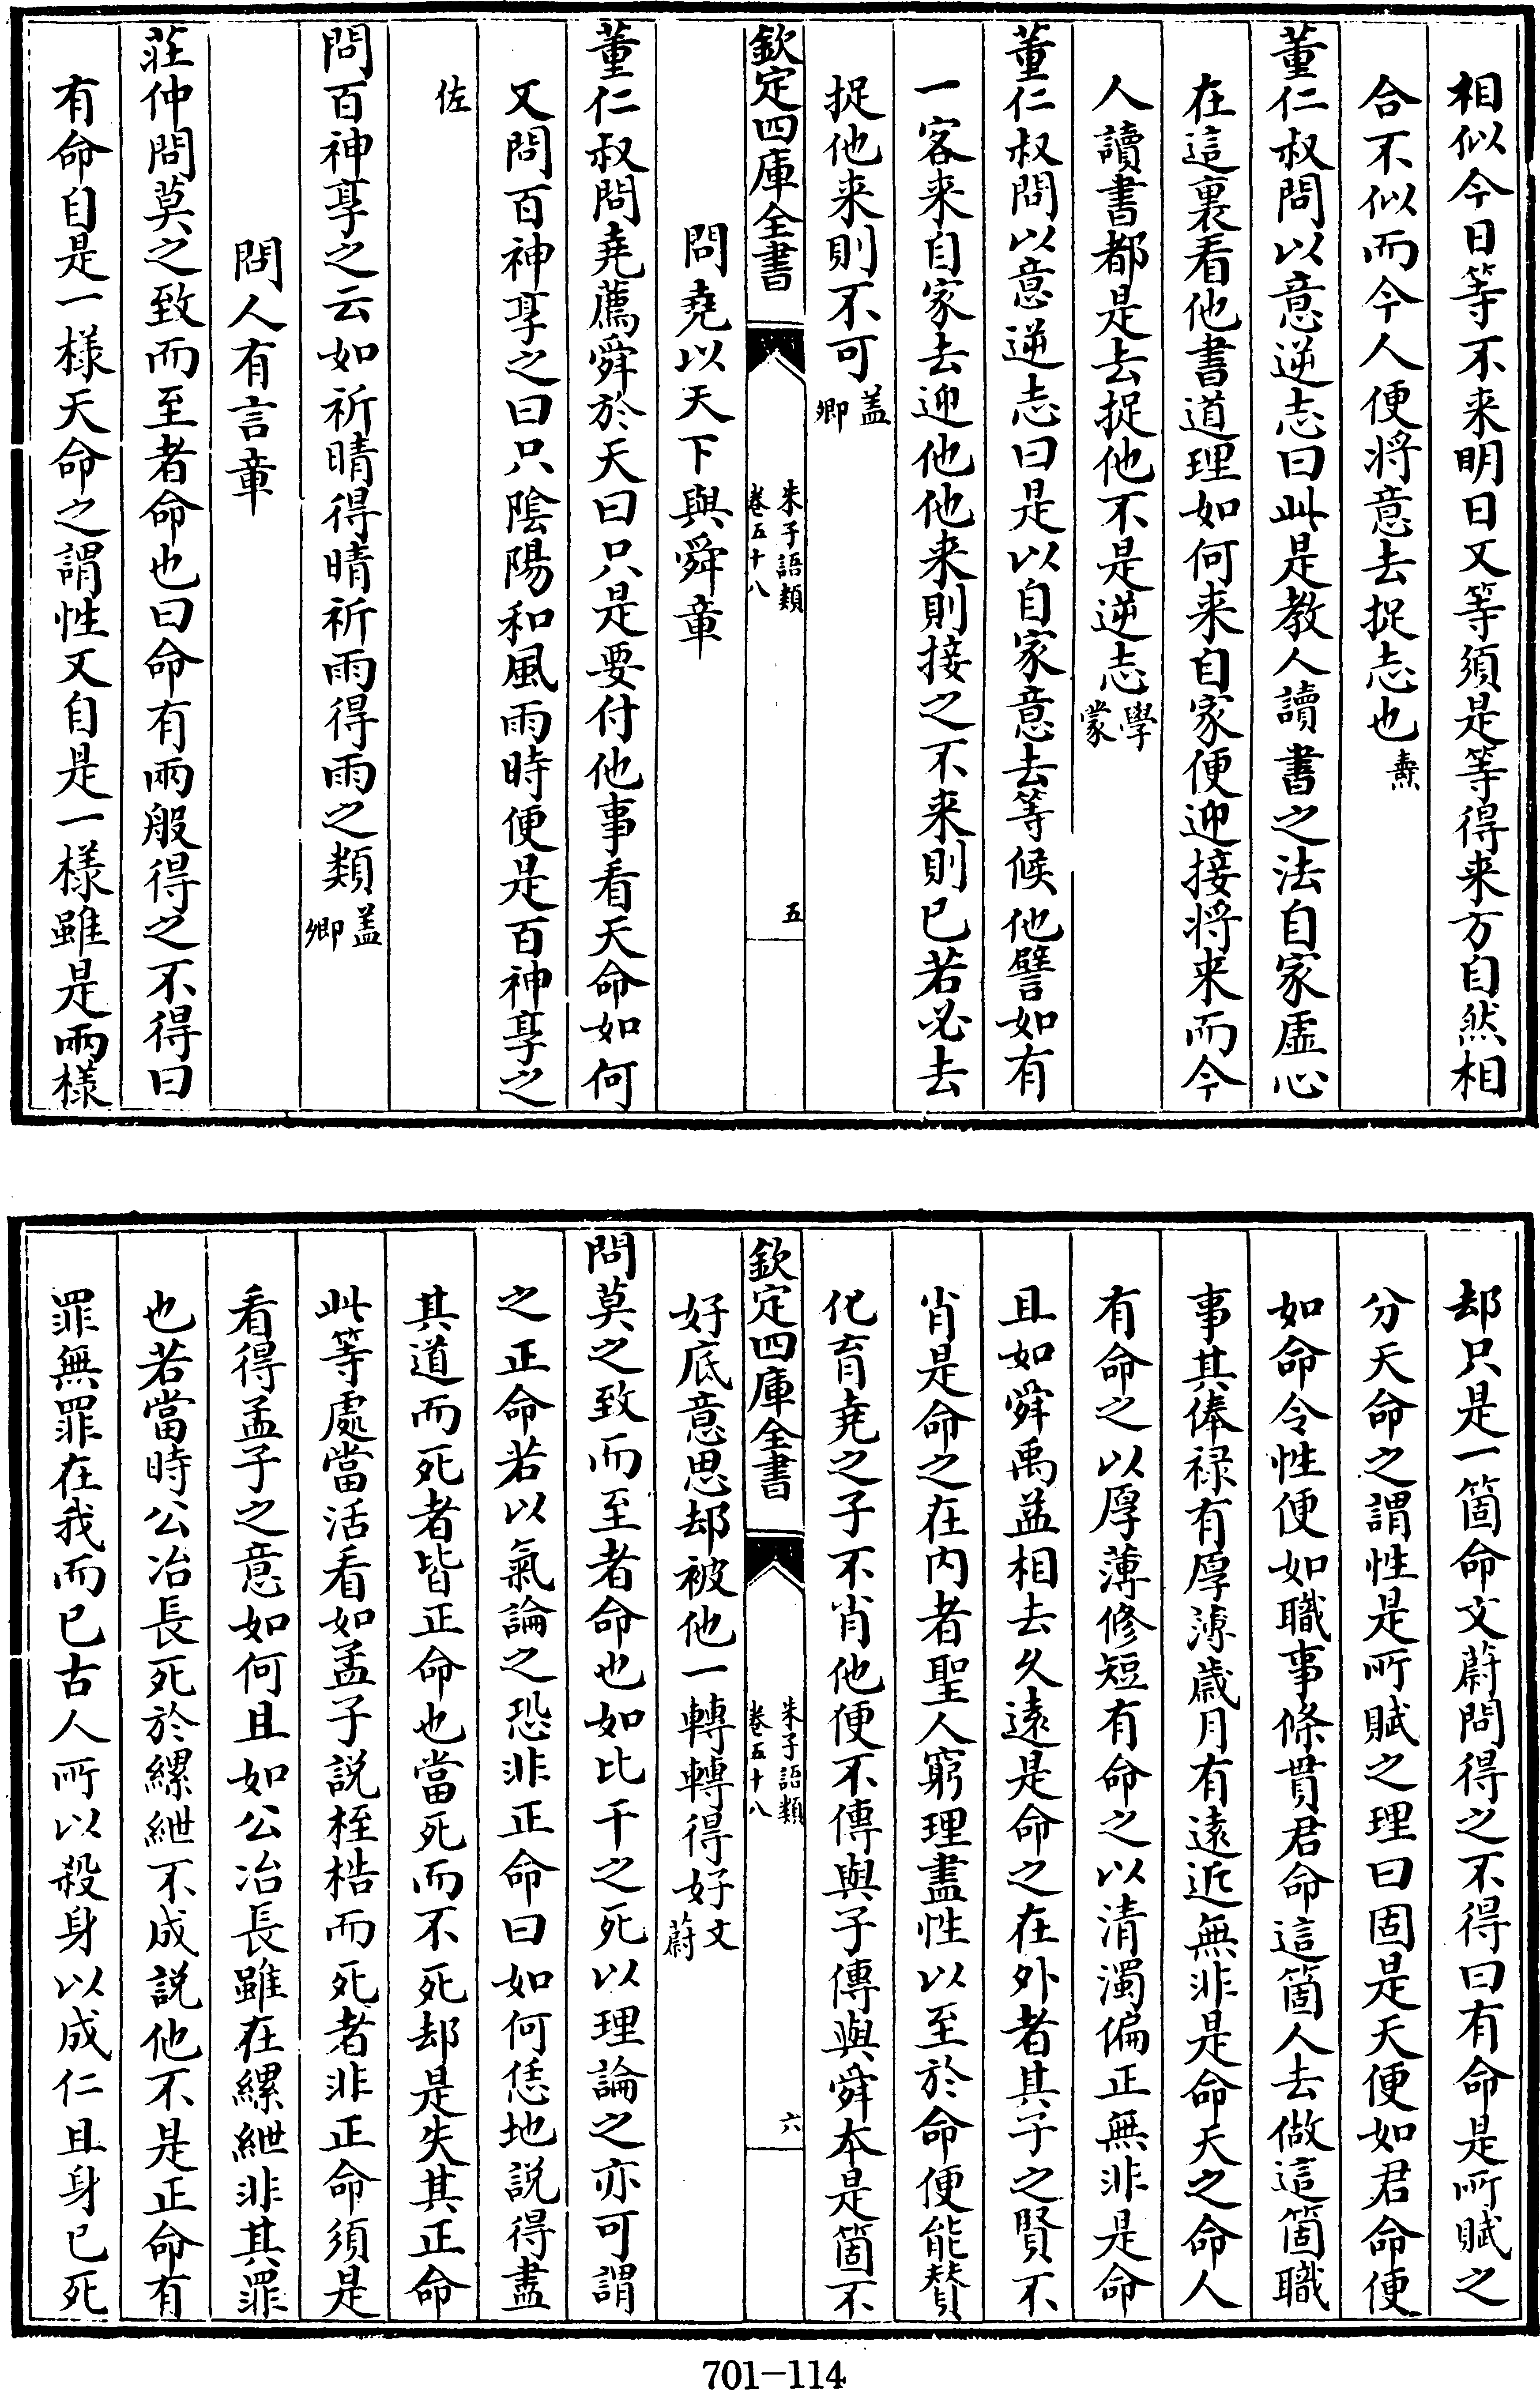 相似今日等不来明日又等須是等得来方自然相
合不似而今人便將意去捉志也 燾
董仁叔問以意逆志曰此是教人讀書之法自家虛心
在這裏看他書道理如何来自家便迎接将来而今
人讀書都是去捉他不是逆志 學蒙
董仁叔問以意逆志曰是以自家意去等候他譬如有
一客来自家去迎他他来則接之不来則已若必去
捉他来則不可 盖卿
欽定四庫全書 朱子語類 卷五十八 五
問堯以天下與舜章
董仁叔問堯薦舜於天曰只是要付他事看天命如何
又問百神享之曰只陰陽和風雨時便是百神享之
佐
問百神享之云如祈晴得晴祈雨得雨之類 盖卿
問人有言章
莊仲問莫之致而至者命也曰命有兩般得之不得曰
有命自是一樣天命之謂性又自是一樣雖是兩樣
却只是一箇命文蔚問得之不得曰有命是所賦之
分天命之謂性是所賦之理曰固是天便如君命便
如命令性便如職事條貫君命這箇人去做這箇職
事其俸禄有厚薄歲月有遠近無非是命天之命人
有命之以厚薄修短有命之以清濁偏正無非是命
且如舜禹益相去久遠是命之在外者其子之賢不
肖是命之在内者聖人窮理盡性以至於命便能贊
化育堯之子不肖他便不傳與子傳與舜本是箇不
欽定四庫全書 朱子語類 卷五十八 六
好底意思却被他一轉轉得好 文蔚
問莫之致而至者命也如比干之死以理論之亦可謂
之正命若以氣論之恐非正命曰如何恁地説得盡
其道而死者皆正命也當死而不死却是失其正命
此等處當活看如孟子説桎梏而死者非正命須是
看得孟子之意如何且如公冶長雖在縲絏非其罪
也若當時公冶長死於縲絏不成説他不是正命有
罪無罪在我而已古人所以殺身以成仁且身已死
701-114